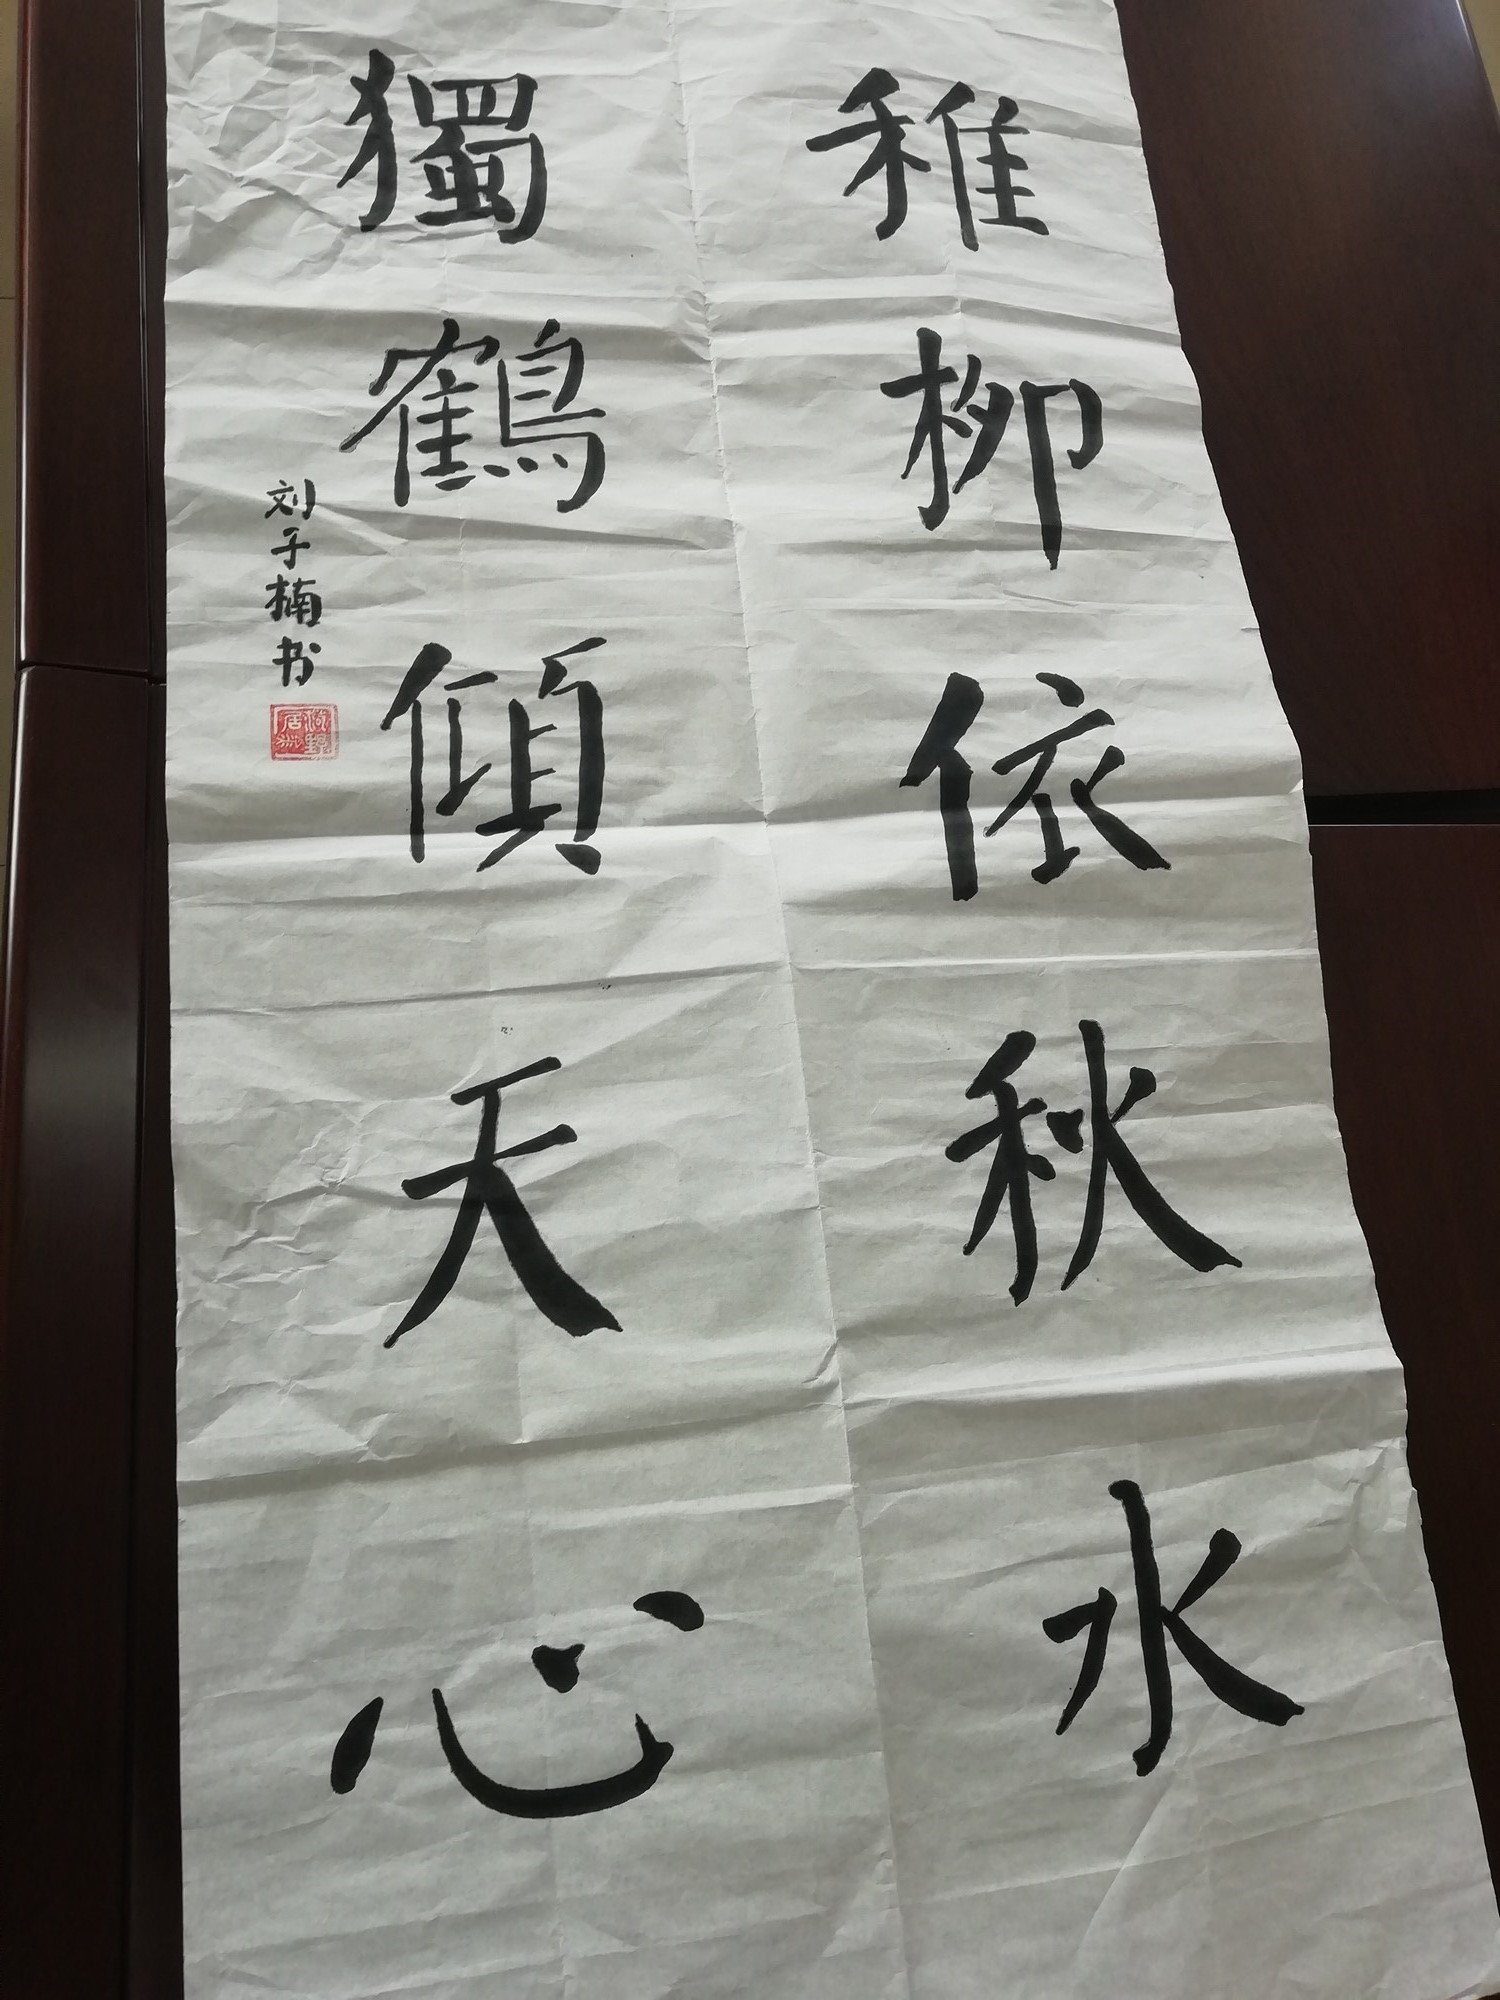 稚柳依秋水
獨鶴傾天心
刘子楠书